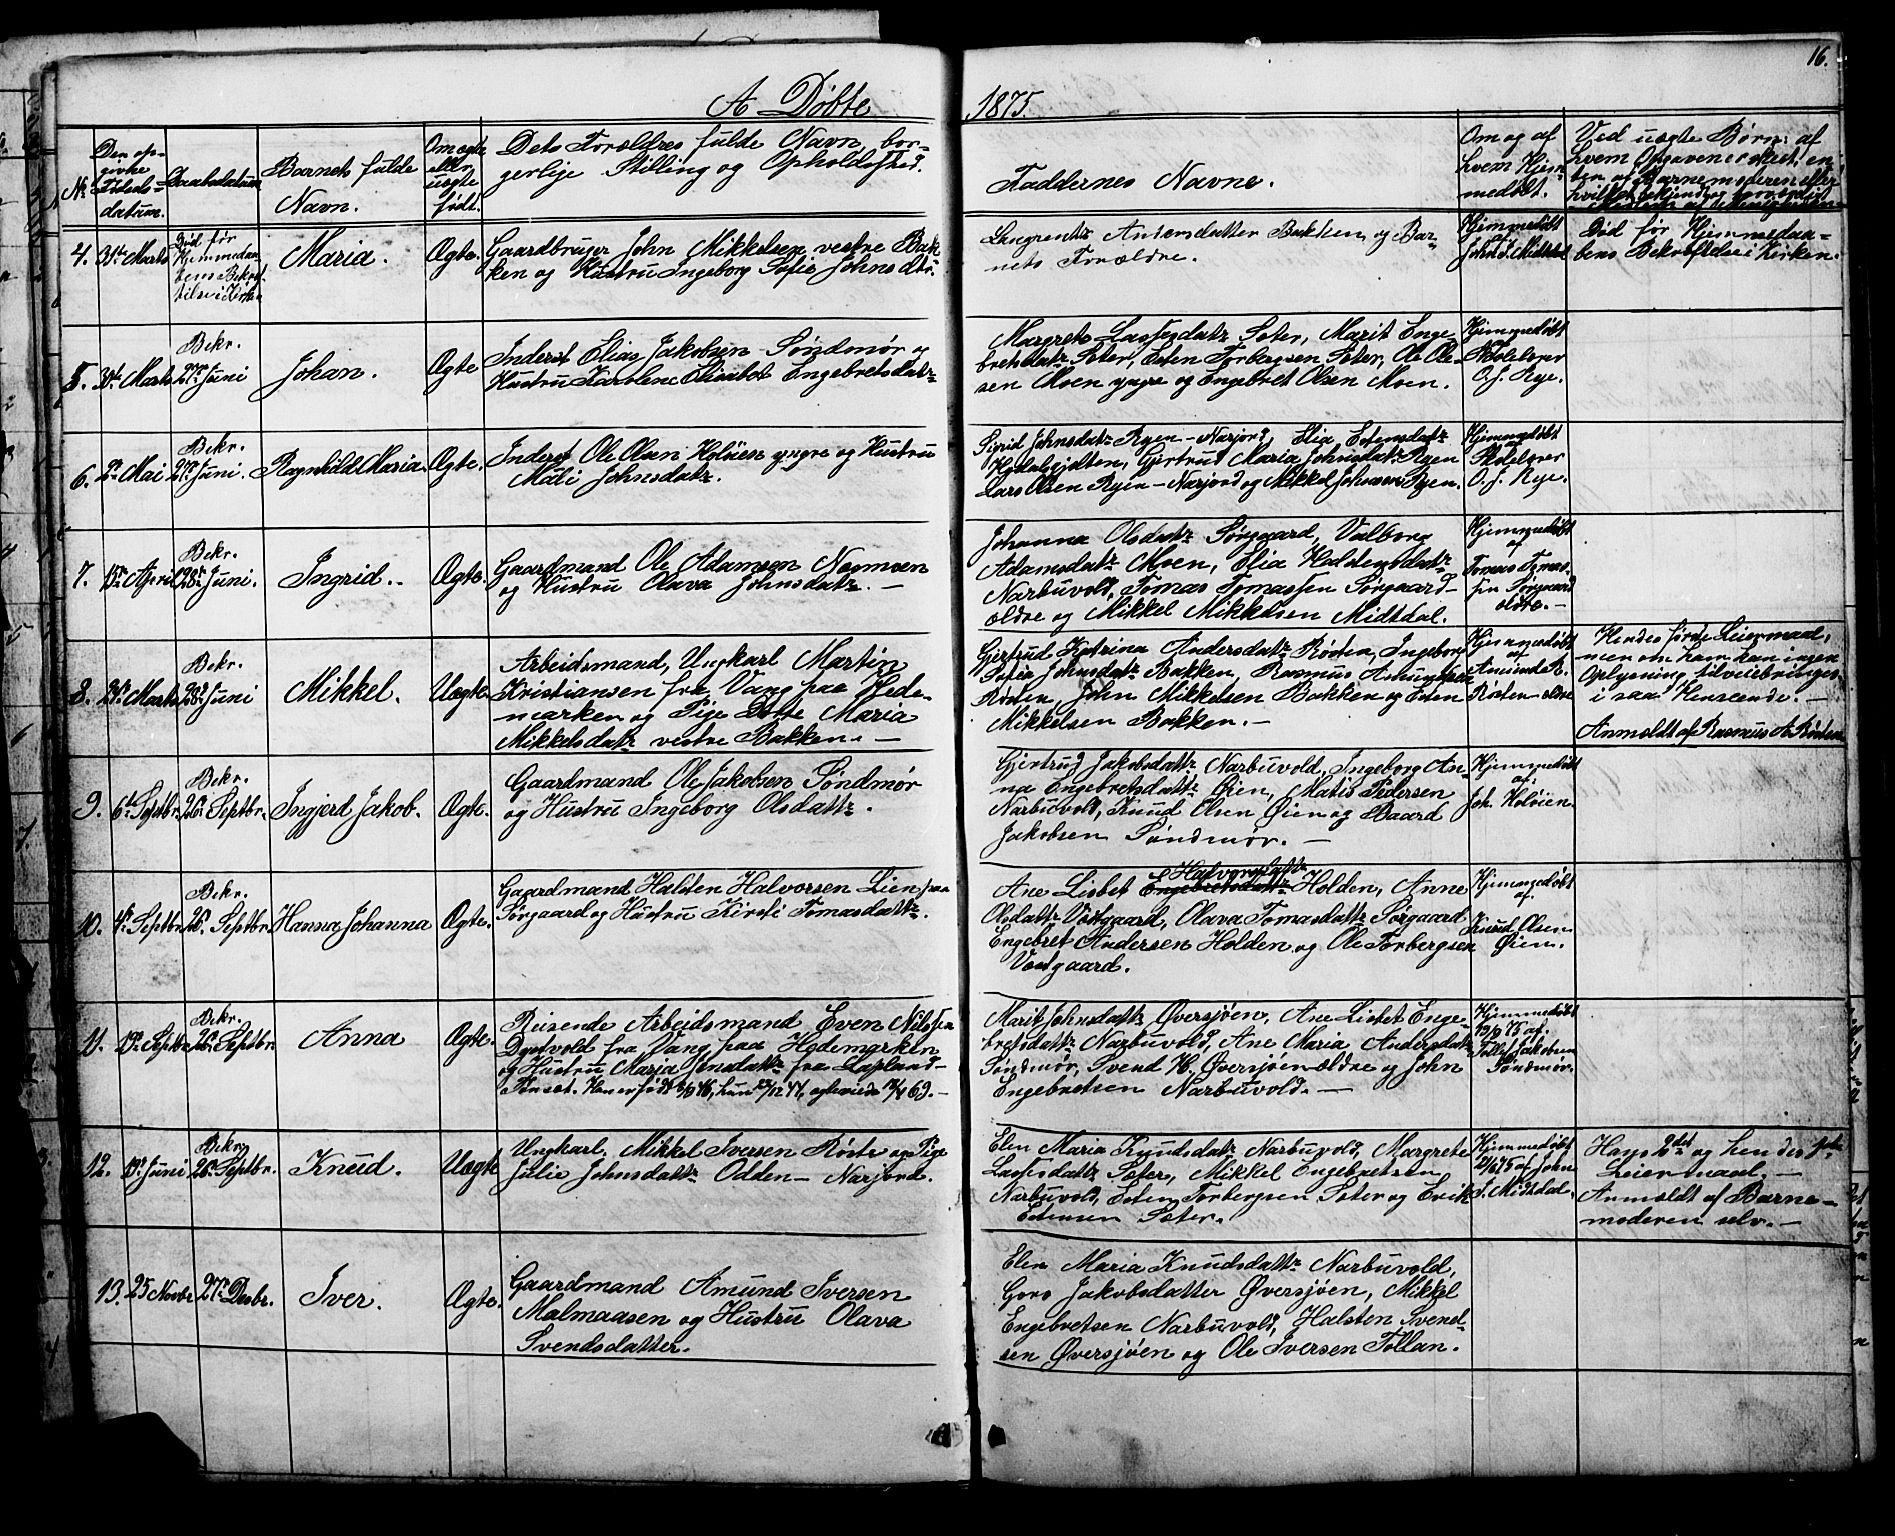 16.
A Döbte 1875.
No. Den op-
givne
Fødsels-
datum.
Daabsdatum
Barnets fulde
Navn.
Om ægte
eller
uægte
født.
Dets Forældres fulde Navn, bor-
gerlige Stilling og Opholdssted.
Faddernes Navne.
Om og af
hvem Hjem-
medöbt.
Ved uægte Børn: af
hvem Opgaven er skeet, en-
ten af Barnemoderen eller
4. 31te Marts
Död før
Hjemmedaa-
bens Bekræf-
telse i Kirken
Maria.
Ægte.
Gaardbruger John Mikkelsen vestre Bak-
ken og Hustru Ingeborg Sofie Johnsdtr.
Andersdatter Bakken og Bar-
nets Forældre.
Hjemmedöbt
John J. Midtdal
Död før Hjemmedaa-
bens Bekræftelse i Kirken.
5. 30te Marts
Bekr.
27de Juni
Johan.
Ægte
Inderst Elias Jakobsen Söndmör og
Hustru Karolene Elisabet Engebretsdatr
Margrete Lassesdatr Sæter, Marit Enge-
bretsdatr Sæter, Esten Torbergsen Sæter, Ole Ole-
sen Moen yngre og Engebret Olsen Moen.
Hjemmedöbt
Skolelærer
O. J. Rye.
6. 2den Mai
Bekr.
27de Juni.
Ragnhild Maria
Ægte.
Inderst Ole Olsen Holöien yngre og Hustru
Mali Johnsdatr.
Sigrid Johnsdatr Ryen-Narjord, Elia Estensdatr
Hodalsgjelten, Gjertrud Maria Johnsdatr Ryen
Lars Olsen Ryen-Narjord og Mikkel Johnsen Ryen.
Hjemmedöbt
Skolelærer
O. J. Rye.
7. 15de April
Bekr.
28de Juni.
Ingrid.
Ægte.
Gaardmand Ole Adamsen Naomoen
og Hustru Olava Johnsdatr.
Johanna Olsdatr Sørgaard, Valborg
Adamsdatr Moen, Elia Haldensdatr
Narbuvold, Tomas Tomassen Sørgaard-
ældre og Mikkel Mikkelsen Midtdal.
Hjemmedöbt
af
Tomas Tomas-
sen Sørgaard
ældre.
8. 31te Marts
Bekr.
28de Juni
Mikkel.
Uægte
Arbeidsmand, Ungkarl Martin
Kristiansen fra Vang paa Hede-
marken og Pige Dorte Maria
Mikkelsdatr vestre Bakken.
Gjertrud Katrina Andersdatr Røsten, Ingeborg
Sofia Johnsdatr Bakken, Rasmus Amundsen
Røsten, John Mikkelsen Bakken og Esten
Mikkelsen Bakken.
Hjemmedöbt
af
Amund R.
Røsten-ældre
Hendes første Leiermaal,
men om ham kan ingen
Oplysning tilveiebringes
i saa Henseende.
Anmeldt af Rasmus A. Røsten
9. 6te Septbr.
Bekr.
26de Septbr.
Ingjerd Jakob.
Ægte.
Gaardmand Ole Jakobsen Söndmør
og Hustru Ingeborg Olsdatr.
Gjertrud Jakobsdatr Narbuvold, Ingeborg An-
na Engebretsdatr Øien, Matis Pedersen
Narbuvold, Knud Olsen Øien og Baard
Jakobsen Söndmør.
Hjemmedöbt
af
Joh. Holöien.
10. 4de Septbr.
Bekr.
26de Septbr.
Hanna Johanna
Ægte.
Gaardmand Halsten Halvorsen Lien paa
Sørgaard og Hustru Kirsti Tomasdatr.
Halvorsdatr
Ane Lisbet Engebretsdatr Holden, Anne
Olsdatr Vestgaard, Olava Tomasdatr Sørgaard
Engebret Andersen Holden og Ole Torbergsen
Vestgaard.
Hjemmedöbt
af
Knud Olsen
Øien.
11. 19de Septbr
Bekr.
26de Septbr.
Anna
Ægte.
Reisende Arbeidsmand Even Nilssen
fra Vang paa Hedemarken
og Hustru Maria Jonsdatr fra
Tönset. Han er født 46, hun 44, og
Marit Johnsdatr Øversjöen, Ane Lisbet Enge-
bretsdatr Narbuvold, Ane Maria Andersdatr
Söndmør, Svend H. Øversjöen-ældre og John
Engebretsen Narbuvold.
Hjemmedöbt
19/9 75 af
Tollef Jakobsen
Söndmør.
12. 19de Juni
Bekr.
26de Septbr.
Knud.
Uægte
Ungkarl Mikkel Iversen Röste og Pige
Julie Johnsdatr Odden-Narjord.
Elen Maria Knudsdatr Narbuvold, Margrete
Lassesdatr Sæter, Mikkel Engebretsen
Narbuvold, Esten Torbergsen Sæter og Erik
Estensen Sæter.
Hjemmedöbt
af John
J. Midtdal.
Hans 2det og hendes 1ste
Leiermaal.
Anmældt af Barne-
moderen selv.
13. 25 Novbr
27de Decbr.
Iver.
Ægte.
Gaardmand Amund Iversen
Malmaasen og Hustru Olava
Svendsdatter.
Elen Maria Knudsdatr Narbuvold,
Goro Jakobsdatter Øversjöen, Mikkel
Engebretsen Narbuvold, Halsten Svend-
sen Øversjöen og Ole Iversen Tollan.